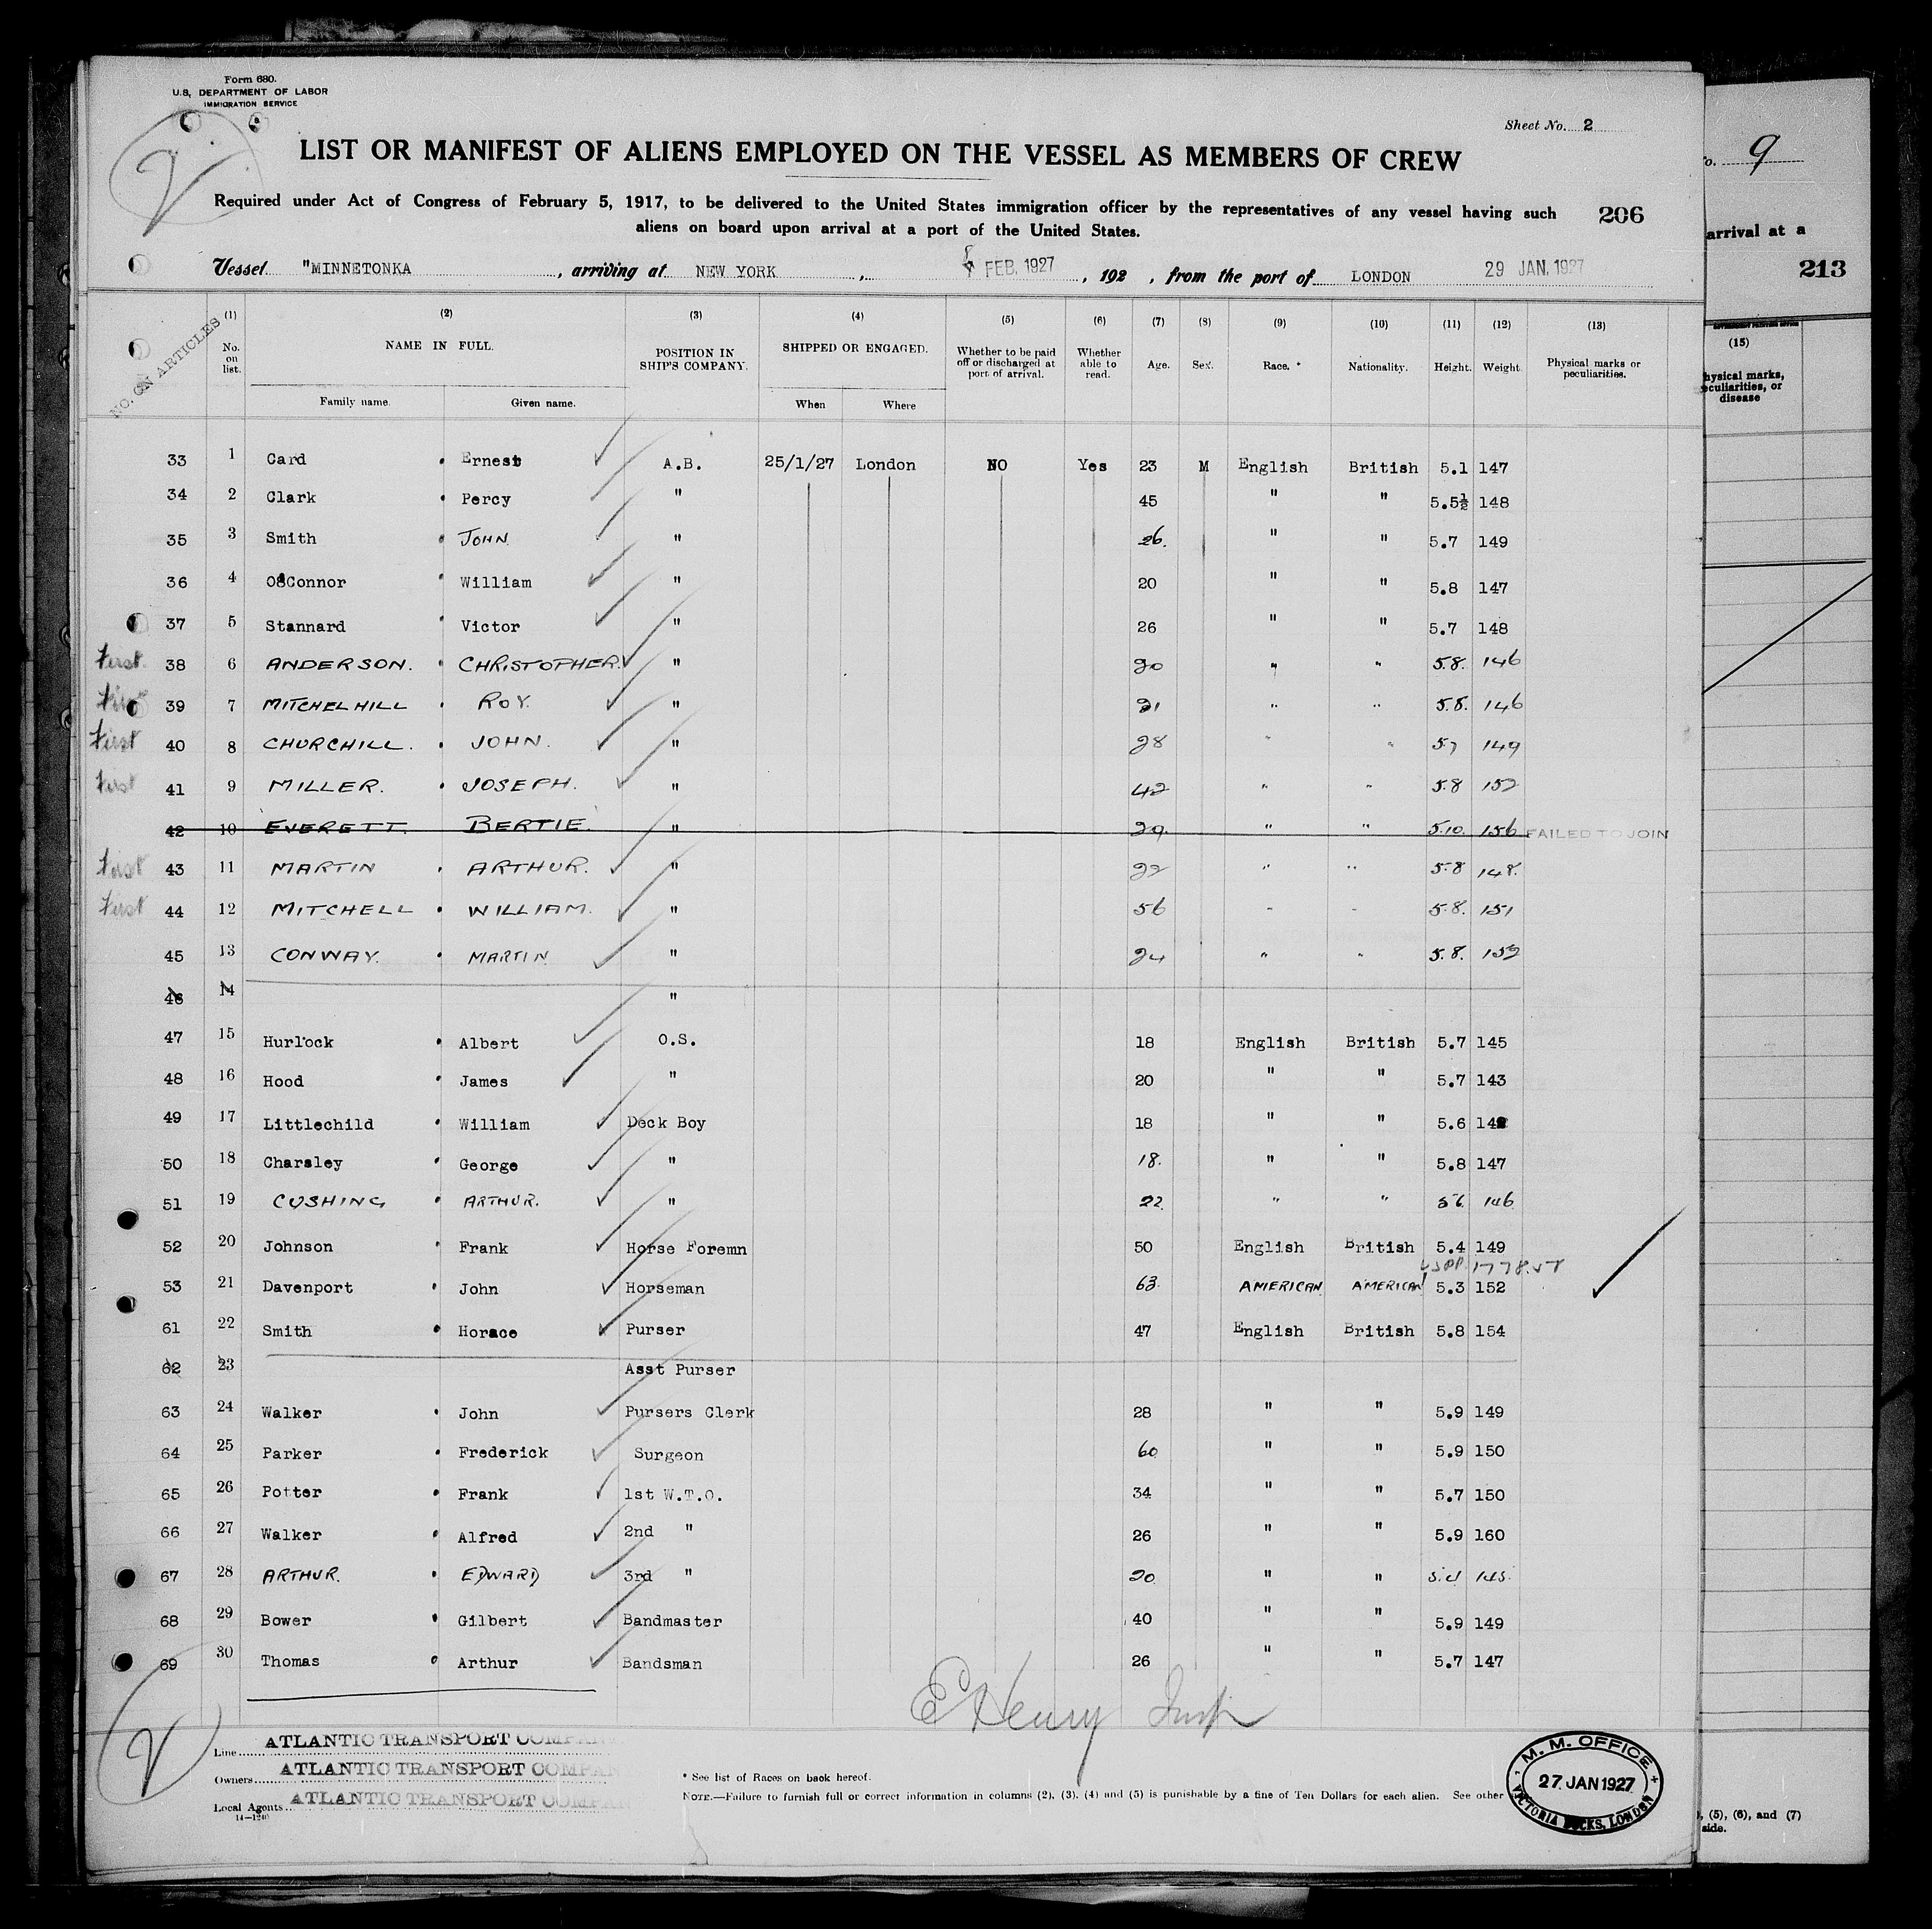 Form 680.
U.S. DEPARTMENT OF LABOR
IMMIGRATION SERVICE
Sheet No. 2
2
LIST OR MANIFEST OF ALIENS EMPLOYED ON THE VESSEL AS MEMBERS OF CREW
Required under Act of Congress of February 5, 1917, to be delivered to the United States immigration officer by the representatives of any vessel having such
aliens on board upon arrival at a port of the United States.
206
Vessel "MINNETONKA , arriving at NEW YORK , FEB. 1927 , 192 , from the port of LONDON 29 JAN. 1927
NO. ON ARTICLES
(1) (2) (3) (4) (5) (6) (7) (8) (9) (10) (11) (12) (13)
No. on list. NAME IN FULL. POSITION IN SHIP'S COMPANY. SHIPPED OR ENGAGED. Whether to be paid off or discharged at port of arrival. Whether able to read. Age. Sex. Race. * Nationality. Height. Weight. Physical marks or peculiarities.
Family name. Given name. When Where
33 1 Card Ernest A.B. 25/1/27 London NO Yes 23 M English British 5.1 147
34 2 Clark Percy " 45 " " 5.5½ 148
35 3 Smith JOHN " 26. " " 5.7 149
36 4 O'Connor William " 20 " " 5.8 147
37 5 Stannard Victor " 26 " " 5.7 148
First 38 6 ANDERSON. CHRISTOPHER. " 20 " " 5.8. 146
First 39 7 MITCHELHILL ROY. " 21 " " 5.8. 146
First 40 8 CHURCHILL. JOHN. " 28 " " 5.7 149
First 41 9 MILLER. JOSEPH. " 42 " " 5.8 152
42 10 EVERETT. BERTIE. " 29. " " 5.10. 156 FAILED TO JOIN
First 43 11 MARTIN ARTHUR. " 22 " " 5.8 148.
First 44 12 MITCHELL WILLIAM. " 56 " " 5.8. 151
45 13 CONWAY. MARTIN " 24 " " 5.8. 152
46 14 "
47 15 Hurlock Albert O.S. 18 English British 5.7 145
48 16 Hood James " 20 " " 5.7 143
49 17 Littlechild William Deck Boy 18 " " 5.6
50 18 Charsley George " 18. " " 5.8 147
51 19 CUSHING ARTHUR. " 22. " " 5.6 146
52 20 Johnson Frank Horse Foremn 50 English British 5.4 149
53 21 Davenport John Horseman 63. AMERICAN AMERICAN 5.3 152
61 22 Smith Horace Purser 47 English British 5.8 154
62 23 Asst Purser
63 24 Walker John Pursers Clerk 28 " " 5.9 149
64 25 Parker Frederick Surgeon 60 " " 5.9 150
65 26 Potter Frank 1st W.T.O. 34 " " 5.7 150
66 27 Walker Alfred 2nd " 26 " " 5.9 160
67 28 ARTHUR. EDWARD 3rd " 20 " " 145
68 29 Bower Gilbert Bandmaster 40 " " 5.9 149
69 30 Thomas Arthur Bandsman 26 " " 5.7 147
E Henry Insp
2
Line ATLANTIC TRANSPORT COMPAN
Owners ATLANTIC TRANSPORT COMPAN
Local Agents ATLANTIC TRANSPORT COMPAN
14—1240
* See list of Races on back hereof.
NOTE.—Failure to furnish full or correct information in columns (2), (3), (4) and (5) is punishable by a fine of Ten Dollars for each alien. See other
M. M. OFFICE
27 JAN 1927
VICTORIA DOCKS, LONDON
o. 9
arrival at a
213
(15)
hysical marks,
eculiarities, or
disease
, (5), (6), and (7)
side.